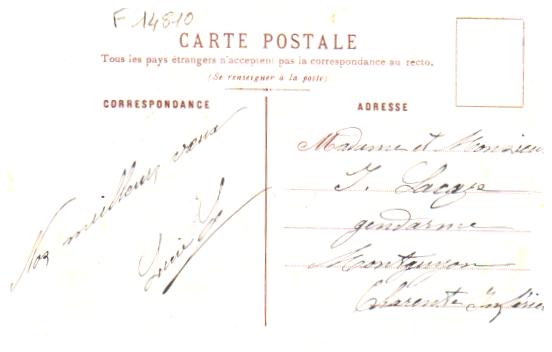 F 14810
CARTE POSTALE
Tous les pays étrangers n'acceptent pas la correspondance au recto.
(Se renseigner à la poste)
CORRESPONDANCE
ADRESSE
Nos meilleurs vœux
Lucie
Madame et Monsieur
gendarme
Montguyon
Charente Inférie